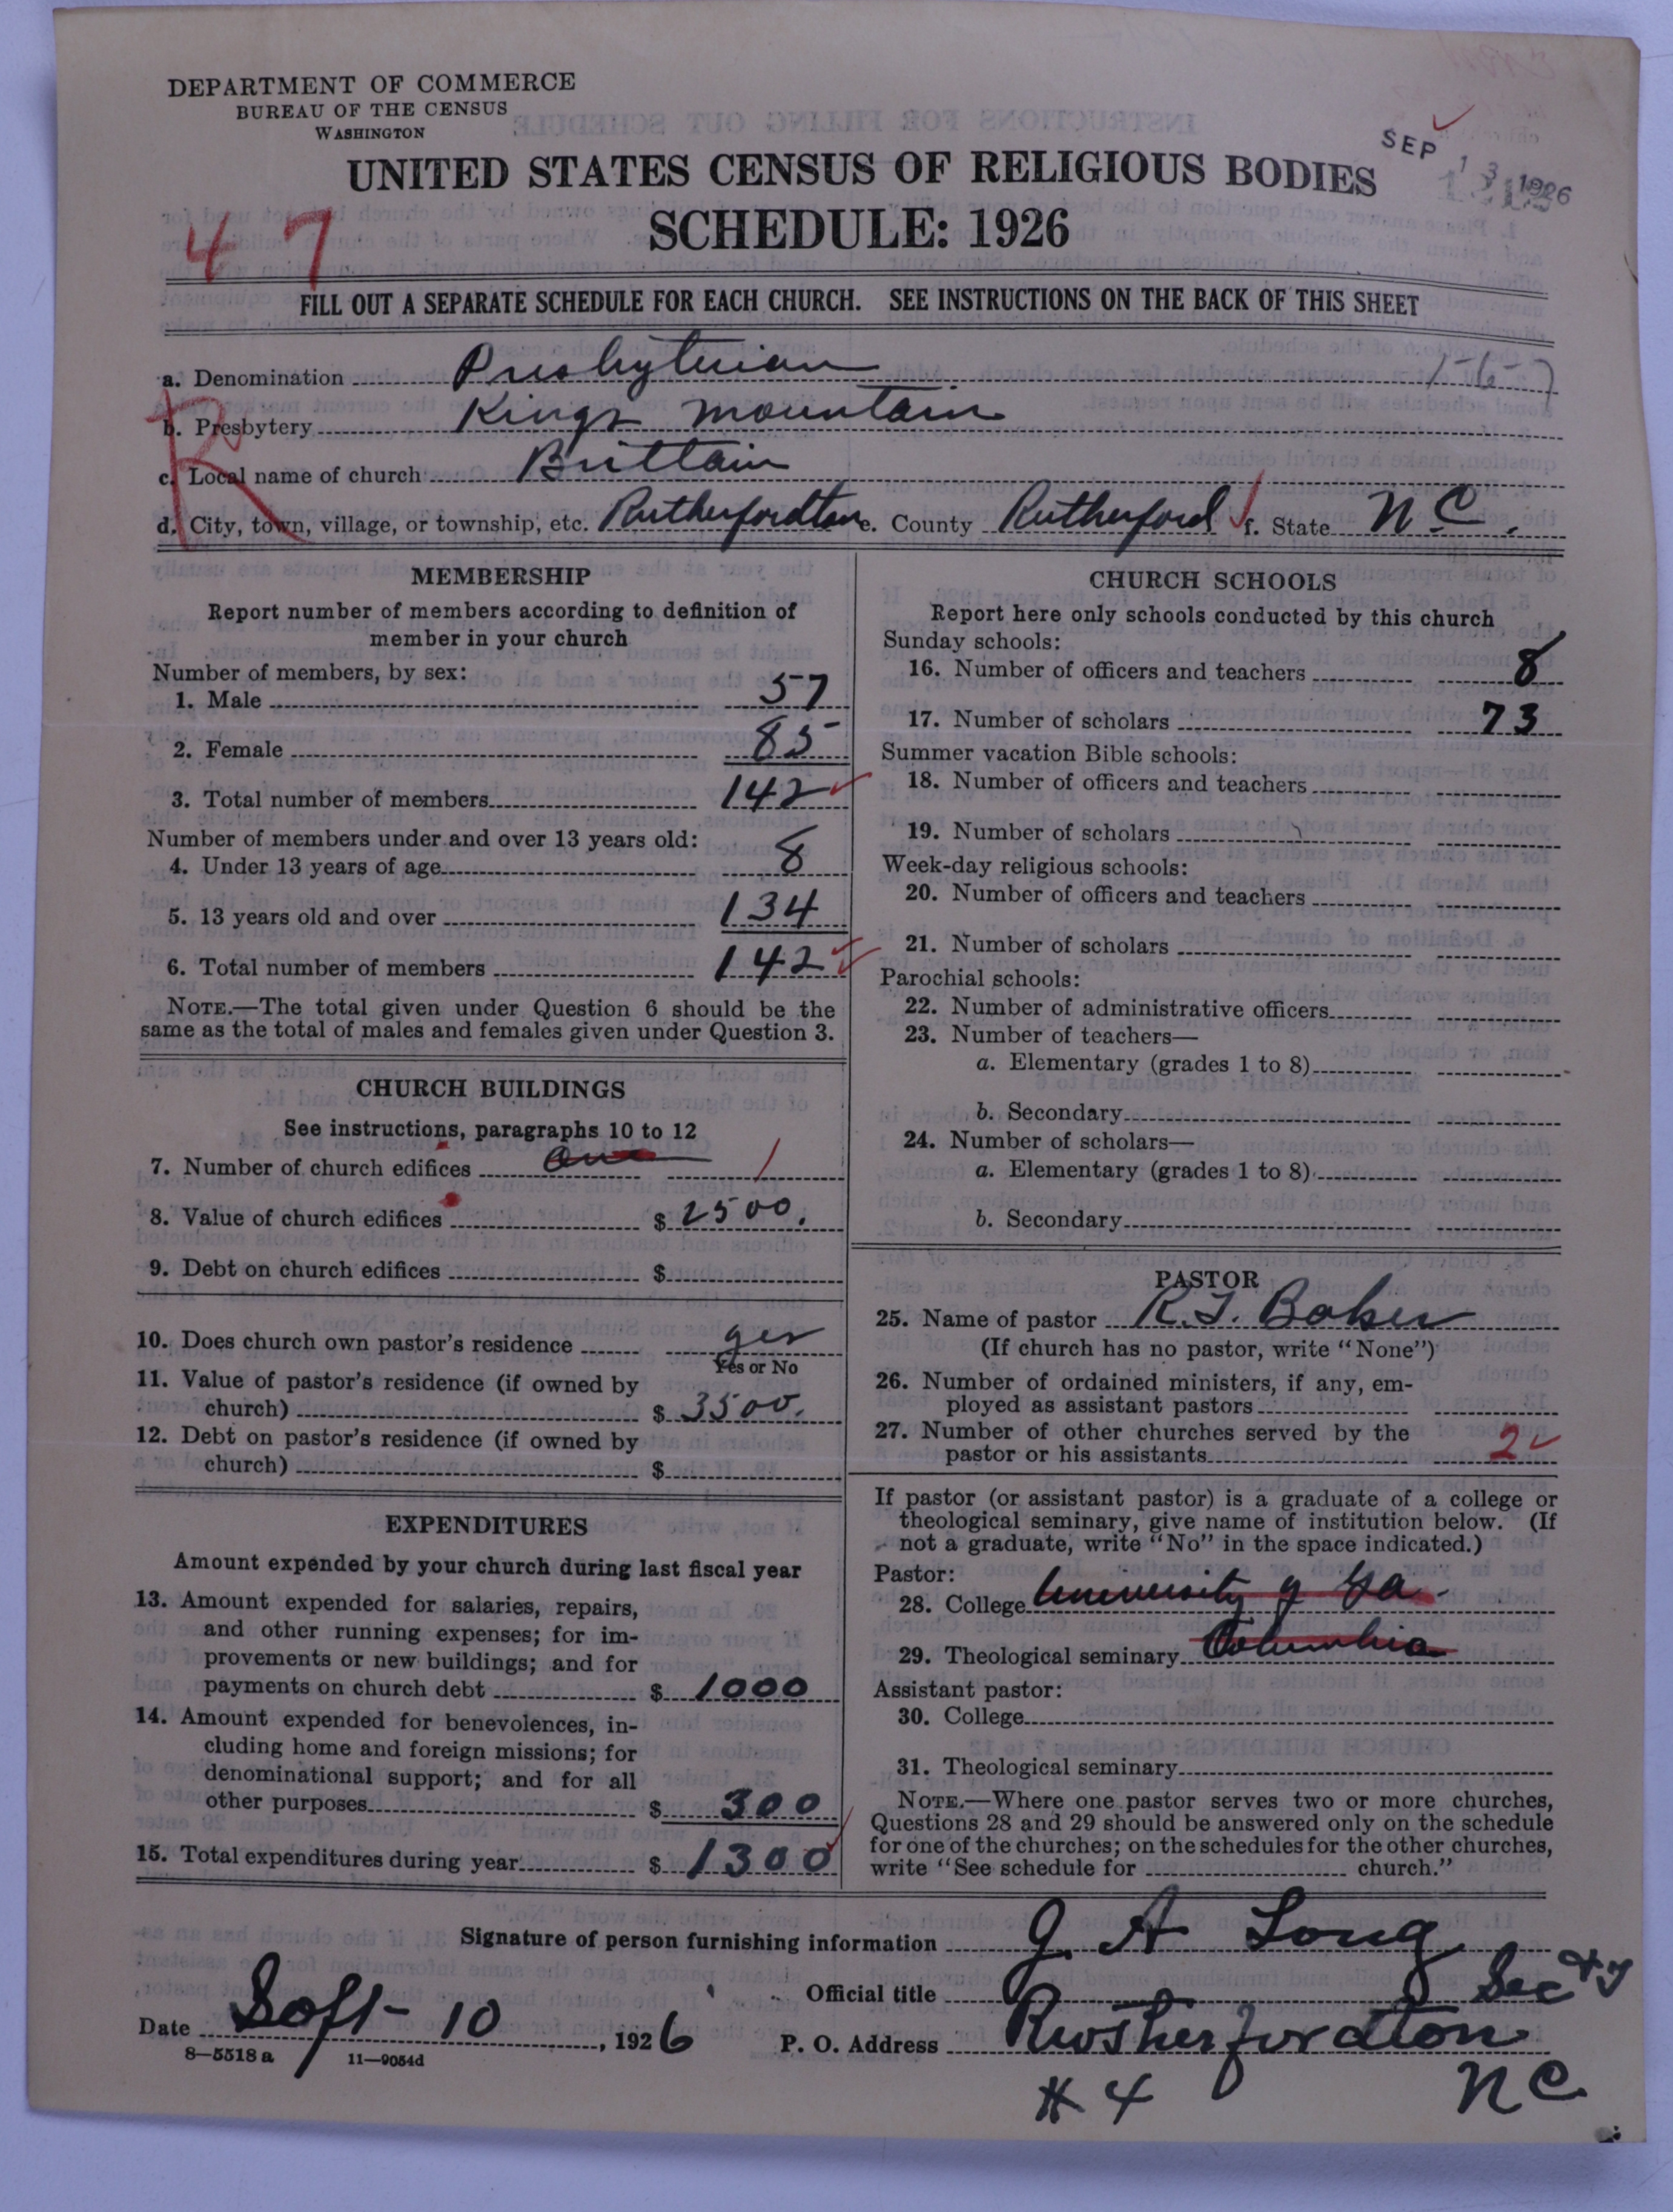 DEPARTMENT OF COMMERCE
BUREAU OF THE CENSUS
WASHINGTON
SEP 13 1926
UNITED STATES CENSUS OF RELIGIOUS BODIES
SCHEDULE: 1926
47
FILL OUT A SEPARATE SCHEDULE FOR EACH CHURCH. SEE INSTRUCTIONS ON THE BACK OF THIS SHEET
a. Denomination Presbyterian 1-6-7
b. Presbytery Kings Mountain
R
c. Local name of church Brittain
d. City, town, village, or township, etc. Rutherfordton e. County Rutherford f. State N.C.
MEMBERSHIP
Report number of members according to definition of
member in your church
Number of members, by sex:
1. Male 57
2. Female 85
3. Total number of members 142
Number of members under and over 13 years old:
4. Under 13 years of age 8
5. 13 years old and over 134
6. Total number of members 142
NOTE.—The total given under Question 6 should be the
same as the total of males and females given under Question 3.
CHURCH BUILDINGS
See instructions, paragraphs 10 to 12
7. Number of church edifices One 1
8. Value of church edifices $ 2500.
9. Debt on church edifices $
10. Does church own pastor's residence yes
Yes or No
11. Value of pastor's residence (if owned by
church) $ 3500.
12. Debt on pastor's residence (if owned by
church) $
EXPENDITURES
Amount expended by your church during last fiscal year
13. Amount expended for salaries, repairs,
and other running expenses; for im-
provements or new buildings; and for
payments on church debt $ 1000
14. Amount expended for benevolences, in-
cluding home and foreign missions; for
denominational support; and for all
other purposes $ 300
15. Total expenditures during year $ 1300
CHURCH SCHOOLS
Report here only schools conducted by this church
Sunday schools:
16. Number of officers and teachers 8
17. Number of scholars 73
Summer vacation Bible schools:
18. Number of officers and teachers
19. Number of scholars
Week-day religious schools:
20. Number of officers and teachers
21. Number of scholars
Parochial schools:
22. Number of administrative officers
23. Number of teachers—
a. Elementary (grades 1 to 8)
b. Secondary
24. Number of scholars—
a. Elementary (grades 1 to 8)
b. Secondary
PASTOR
25. Name of pastor R.T. Baker
(If church has no pastor, write "None")
26. Number of ordained ministers, if any, em-
ployed as assistant pastors
27. Number of other churches served by the
pastor or his assistants 2
If pastor (or assistant pastor) is a graduate of a college or
theological seminary, give name of institution below. (If
not a graduate, write "No" in the space indicated.)
Pastor:
28. College University of Ga.
29. Theological seminary Columbia
Assistant pastor:
30. College
31. Theological seminary
NOTE.—Where one pastor serves two or more churches,
Questions 28 and 29 should be answered only on the schedule
for one of the churches; on the schedules for the other churches,
write "See schedule for church."
Signature of person furnishing information J. A Long
Official title Sec + T
Date Sept 10, 1926
P. O. Address Rutherfordton
# 4 NC
8—5518 a 11—9054d